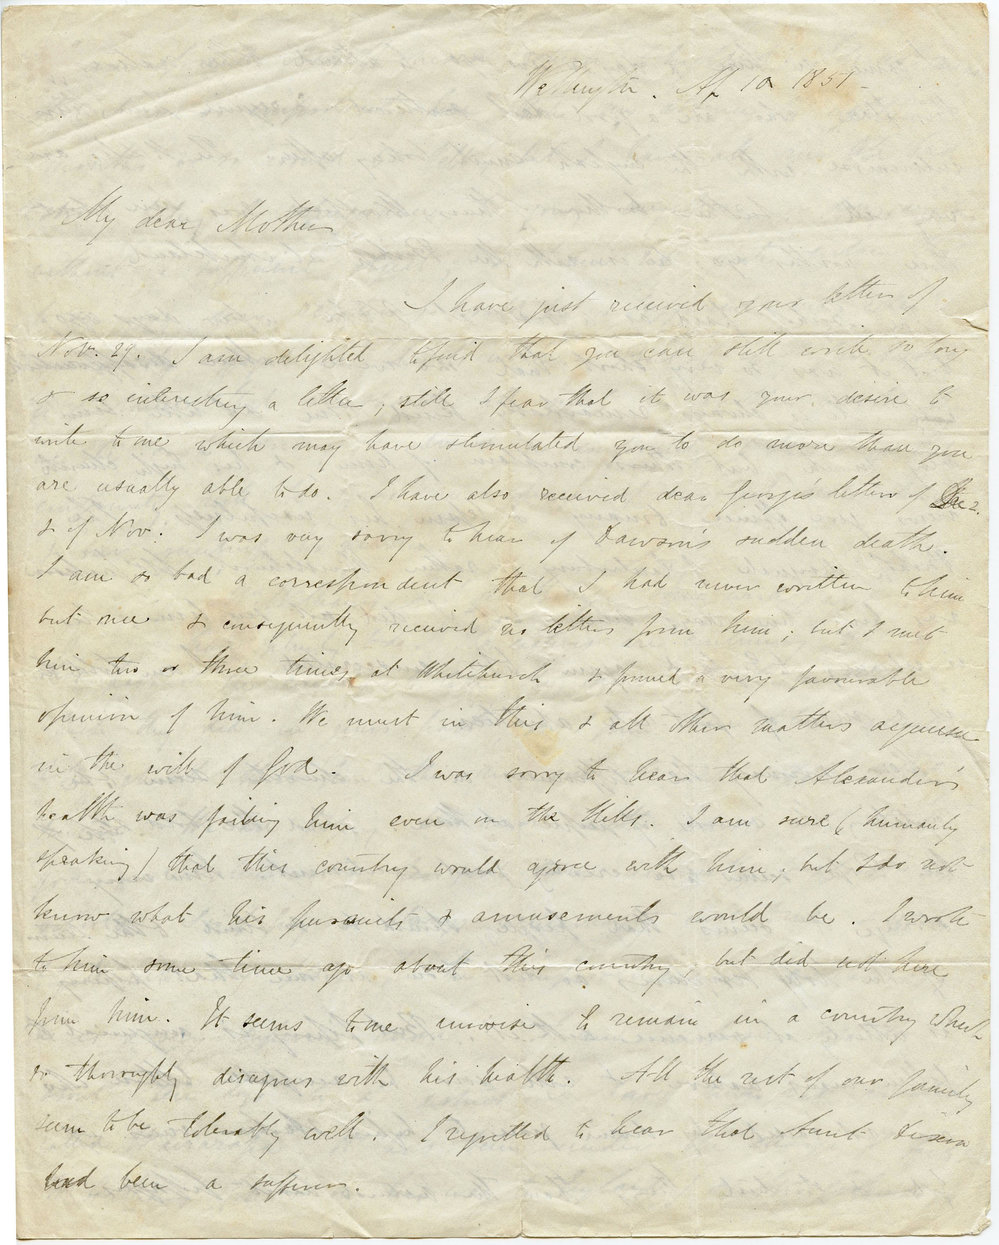 Wellington. Ap 10 1851
My dear Mother
I have just received your letter of
Nov. 29. I am delighted to find that you can still write so long
& so interesting a letter; still I fear that it was your desire to
write to me which may have stimulated you to do more than you
are usually able to do. I have also received dear George's letters of Dec 2.
& of Nov: I was very sorry to hear of Dawson's sudden death.
I am so bad a correspondent that I had never written to him
but once & consequently received no letters from him; but I met
him two or three times at Whitchurch & formed a very favourable
opinion of him. We must in this & all other matters acquiesce
in the will of God. I was sorry to hear that Alexander's
health was failing him even on the Hills. I am sure (humanly
speaking) that this country would agree with him; but I do not
know what his pursuits & amusements would be. I wrote
to him some time ago about this country, but did not hear
from him. It seems to me unwise to remain in a country which
so thoroughly disagrees with his health. All the rest of our family
seem to be tolerably well. I regretted to hear that Aunt
had been a sufferer.